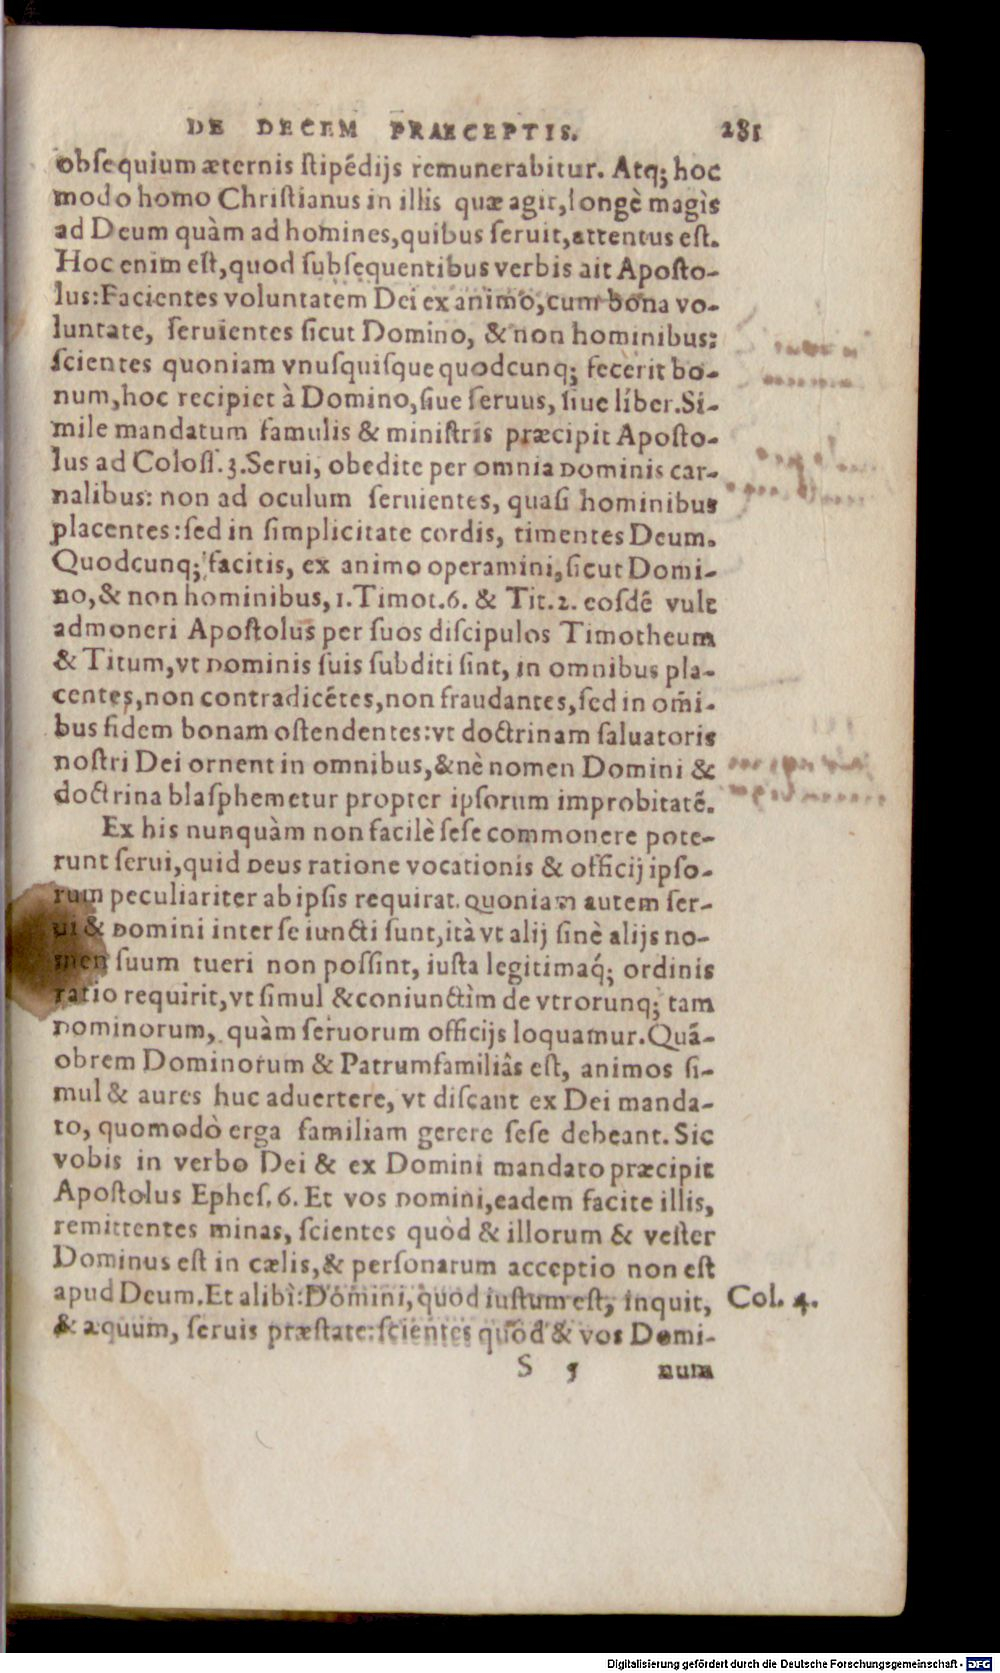 DE DECEM PRAECEPTIS. 281
obſequium æternis ſtipẽdijs remunerabitur. Atq; hoc
modo homo Chriſtianus in illis quæ agit, longè magìs
ad Deum quàm ad homines, quibus ſeruit, attentus eſt.
Hoc enim eſt, quod ſubſequentibus verbis ait Apoſto-
lus: Facientes voluntatem Dei ex animo, cum bona vo-
luntate, ſeruientes ſicut Domino, & non hominibus:
ſcientes quoniam vnuſquiſque quodcunq; fecerit bo-
num, hoc recipiet à Domino, ſiue ſeruus, ſiue líber. Si-
mile mandatum famulis & miniſtris præcipit Apoſto-
lus ad Coloſſ. 3. Serui, obedite per omnia Dominis car-
nalibus: non ad oculum ſeruientes, quaſi hominibus
placentes: ſed in ſimplicitate cordis, timentes Deum.
Quodcunq; facitis, ex animo operamini, ſicut Domi-
no, & non hominibus, 1. Timot. 6. & Tit. 2. eoſdẽ vult
admoneri Apoſtolus per ſuos diſcipulos Timotheum
& Titum, vt Dominis ſuis ſubditi ſint, in omnibus pla-
centes, non contradicẽtes, non fraudantes, ſed in om̃i-
bus fidem bonam oſtendentes: vt doctrinam ſaluatoris
noſtri Dei ornent in omnibus, & nè nomen Domini &
doctrina blaſphemetur propter ipſorum improbitatẽ.
Ex his nunquàm non facilè ſeſe commonere pote-
runt ſerui, quid Deus ratione vocationis & officij ipſo-
rum peculiariter ab ipſis requirat. Quoniam autem ſer-
ui & Domini inter ſe iuncti ſunt, ità vt alij ſinè alijs no-
men ſuum tueri non poſſint, iuſta legitimaq́; ordinis
ratio requirit, vt ſimul & coniunctìm de vtrorunq; tam
Dominorum, quàm ſeruorum officijs loquamur. Quã-
obrem Dominorum & Patrumfamiliâs eſt, animos ſi-
mul & aures huc aduertere, vt diſcant ex Dei manda-
to, quomodò erga familiam gerere ſeſe debeant. Sic
vobis in verbo Dei & ex Domini mandato præcipit
Apoſtolus Epheſ. 6. Et vos Domini, eadem facite illis,
remittentes minas, ſcientes quòd & illorum & veſter
Dominus eſt in cælis, & perſonarum acceptio non eſt
apud Deum. Et alibì: Domini, quod iuſtum eſt, inquit, Col. 4.
& æquum, ſeruis præſtate: ſcientes quòd & vos Domi-
S 5 num
Digitalisierung gefördert durch die Deutsche Forschungsgemeinschaft - DFG